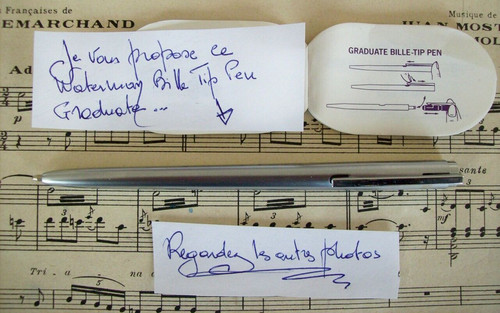 s Françaises de
EMARCHAND
Musique de
IVAN MOST
Je vous propose ce
Waterman Bille Tip Pen
Graduate...
GRADUATE BILLE-TIP PEN
Ad
MOL
p
3
3
3
sante
mf
Regardez les autres photos
Tri - a - na